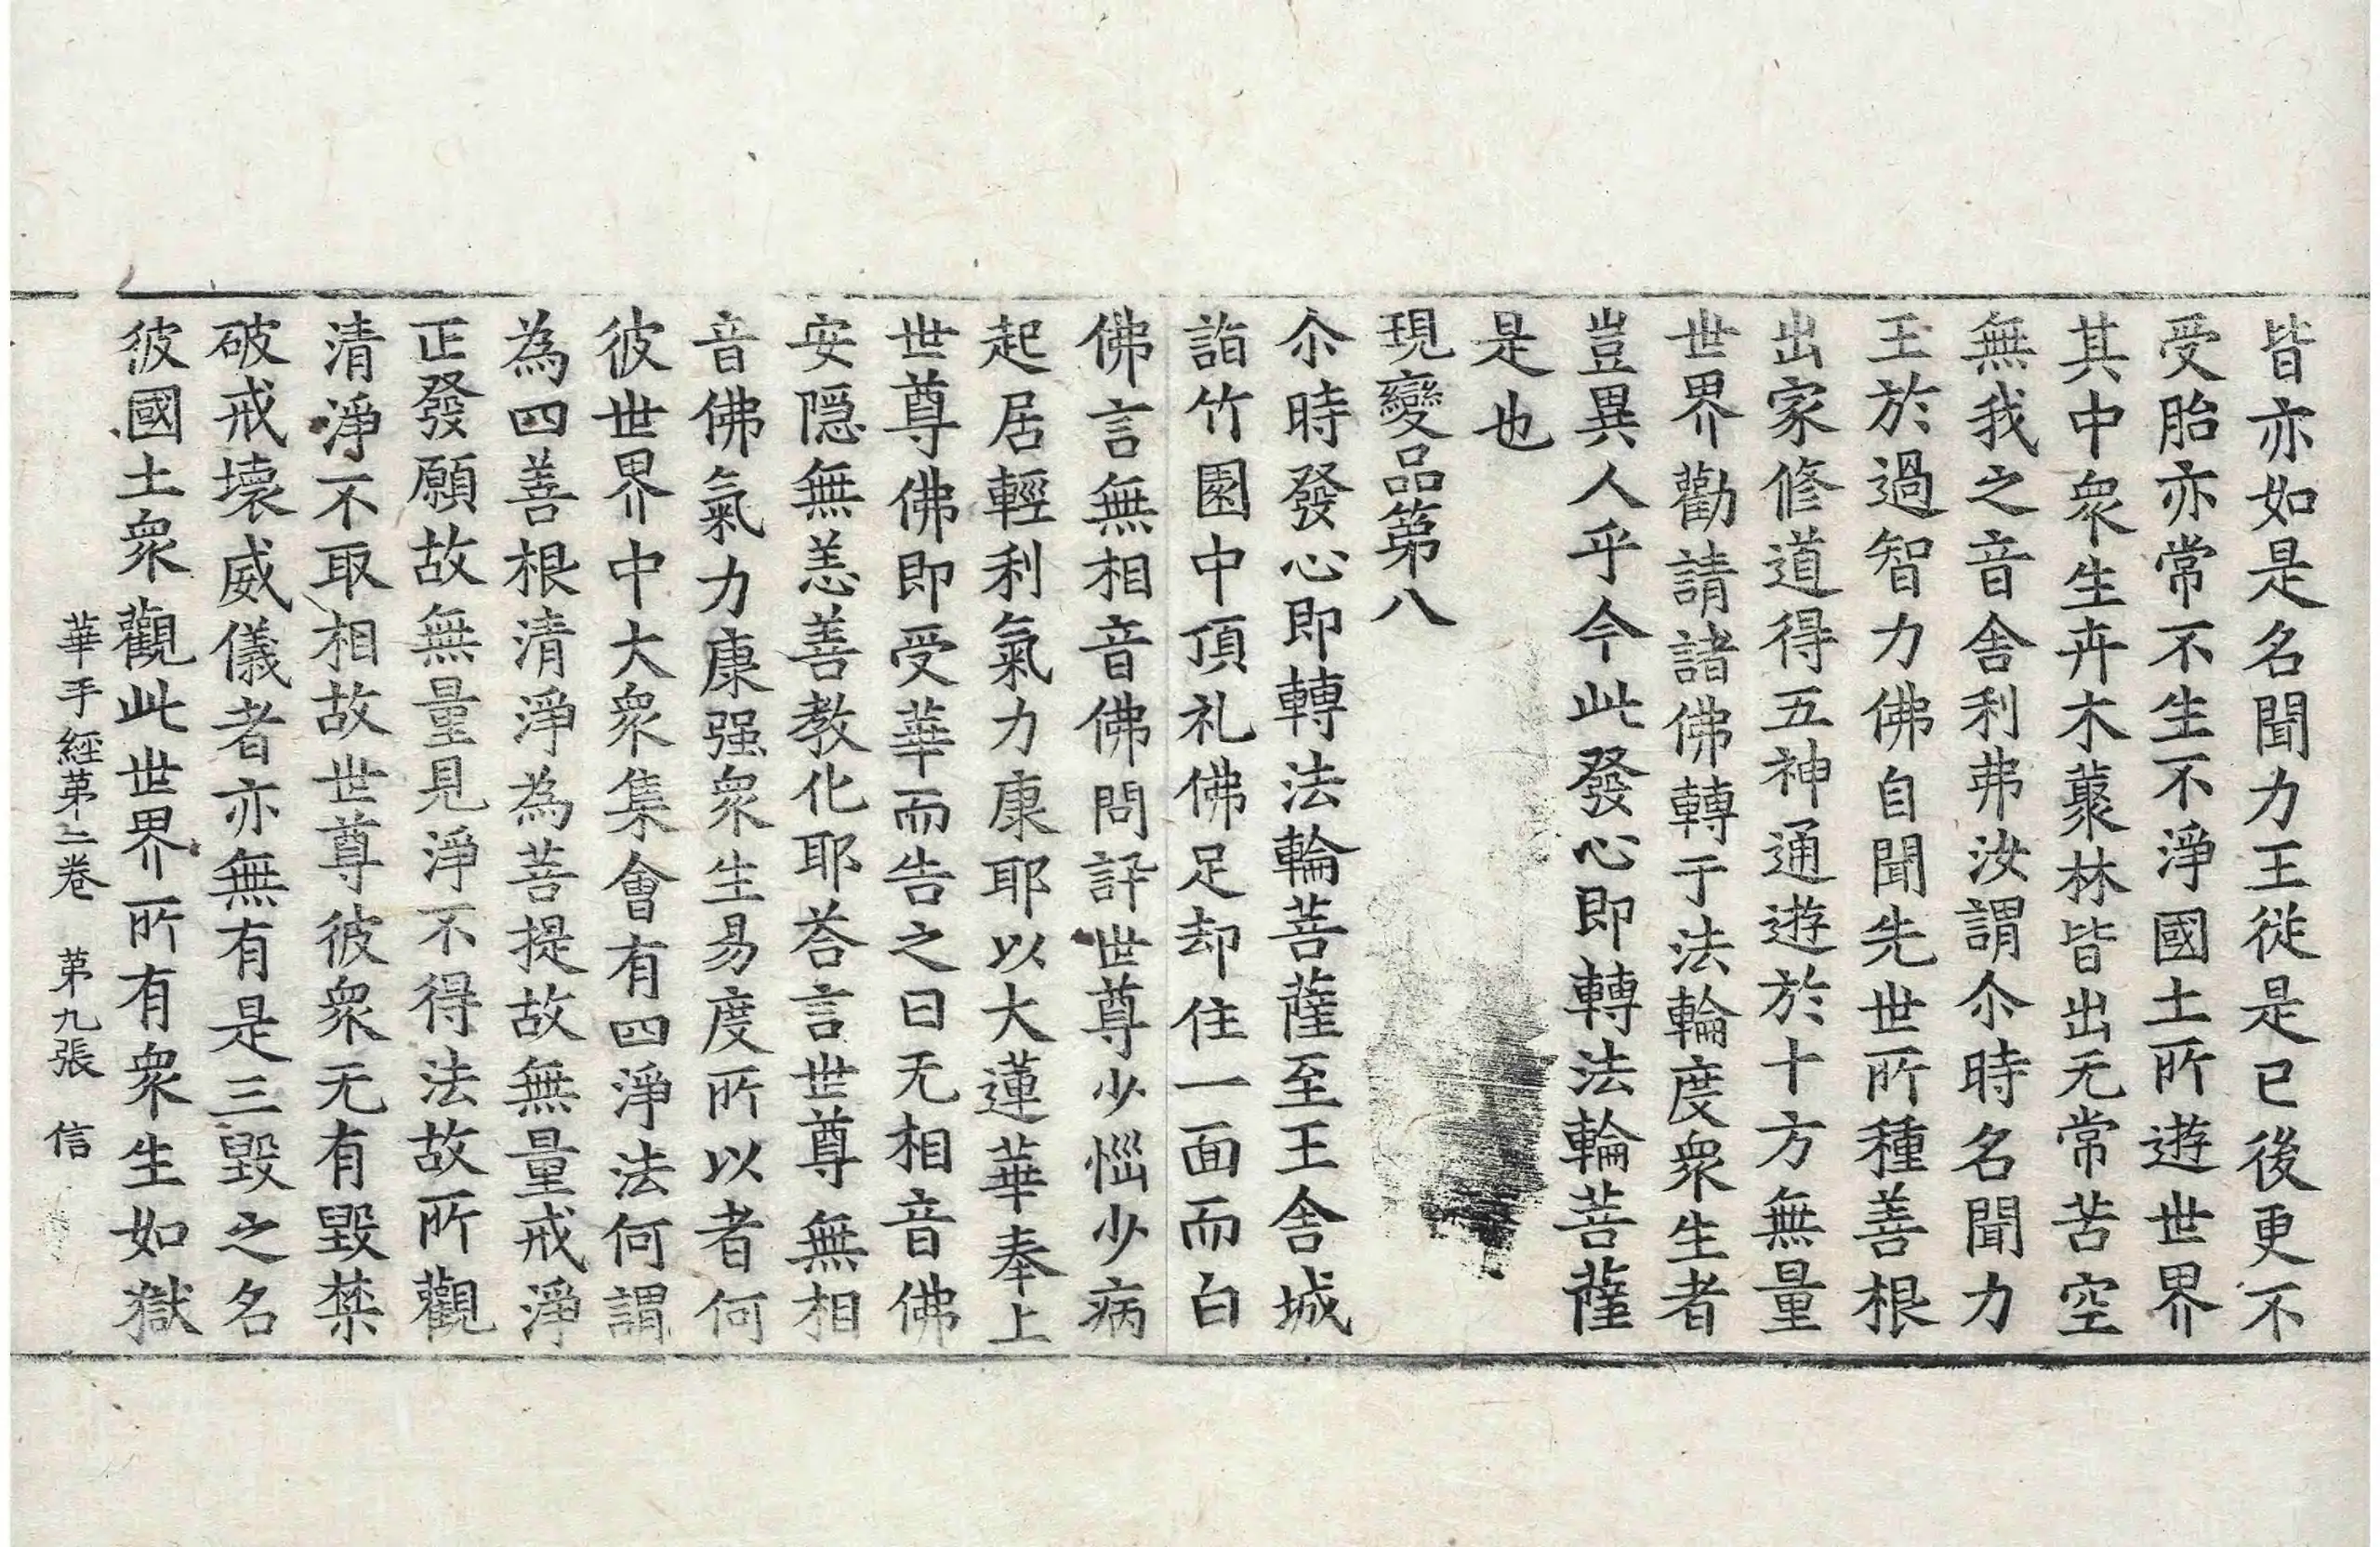 皆亦如是名聞力王從是已後更不
受胎亦常不生不淨國土所遊世界
其中衆生卉木藂林皆出无常苦空
無我之音舎利弗汝謂尒時名聞力
王於過智力佛自聞先世所種善根
出家修道得五神通遊於十方無量
世界勸請諸佛轉于法輪度衆生者
豈異人乎今此發心即轉法輪菩薩
是也
現變品第八
尒時發心即轉法輪菩薩至王舎城
詣竹園中頂礼佛足却住一面而白
佛言無相音佛問訊世尊少惱少病
起居輕利氣力康耶以大蓮華奉上
世尊佛即受華而告之曰无相音佛
安隱無恙善教化耶荅言世尊無相
音佛氣力康强衆生易度所以者何
彼世界中大衆集會有四淨法何謂
為四善根清淨為菩提故無量戒淨
正發願故無量見淨不得法故所觀
清淨不取相故世尊彼衆无有毀禁
破戒壞威儀者亦無有是三毀之名
彼國土衆觀此世界所有衆生如獄
華手經第二卷　第九張　信